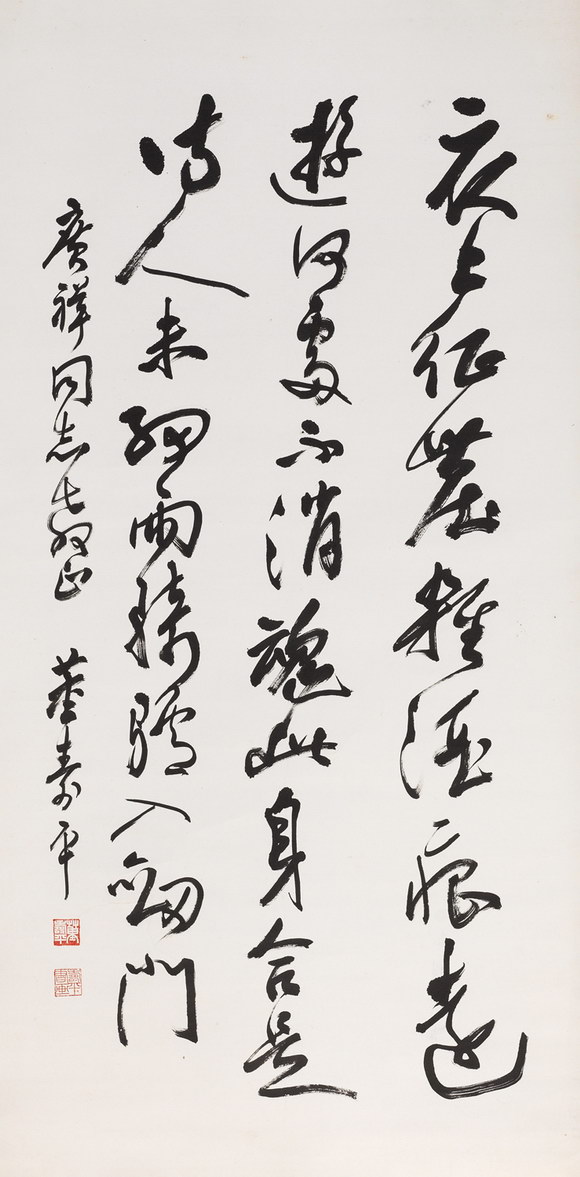 衣上征塵雜酒痕遠
遊何處不消魂此身合是
詩人未細雨騎驢入劒門
廣祥同志教正 董壽平